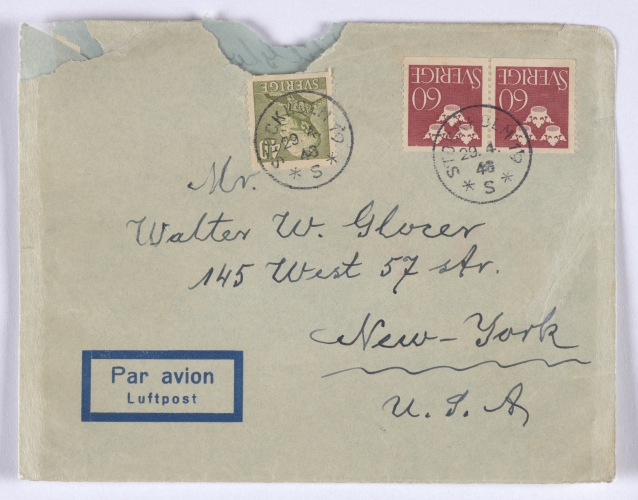 SVERIGE
SVERIGE
SVERIGE
60
60
STOCKHOLM 19
29. 4.
STOCKHOLM 19
29. 4.
46
* S *
* S *
Mr.
Walter W. Glocer
145 West 57 str.
New-York
U.S.A
Par avion
Luftpost